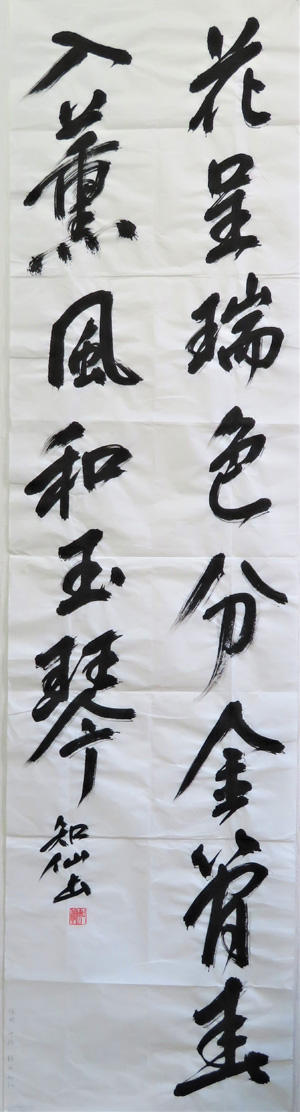 花呈瑞色分金管春
入薰風和玉琴
知仙